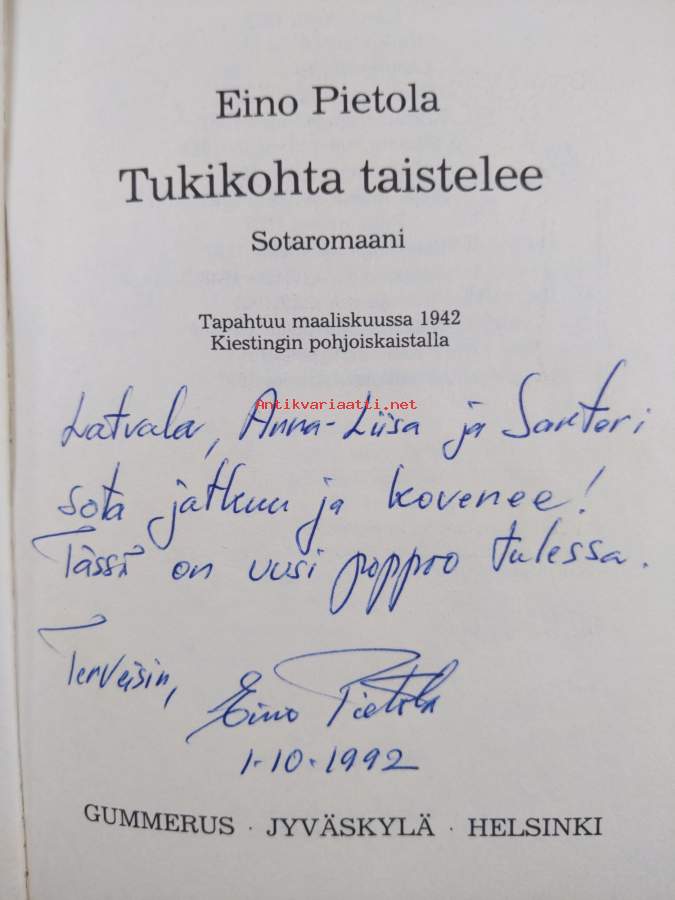 Eino Pietola
Tukikohta taistelee
Sotaromaani
Tapahtuu maaliskuussa 1942
Kiestingin pohjoiskaistalla
Antikvariaatti.net
Latvala, Anna-Liisa ja Santeri
sota jatkuu ja kovenee!
Tässä on uusi poppoo tulessa.
Terveisin,
Eino Pietola
1.10.1992
GUMMERUS · JYVÄSKYLÄ · HELSINKI